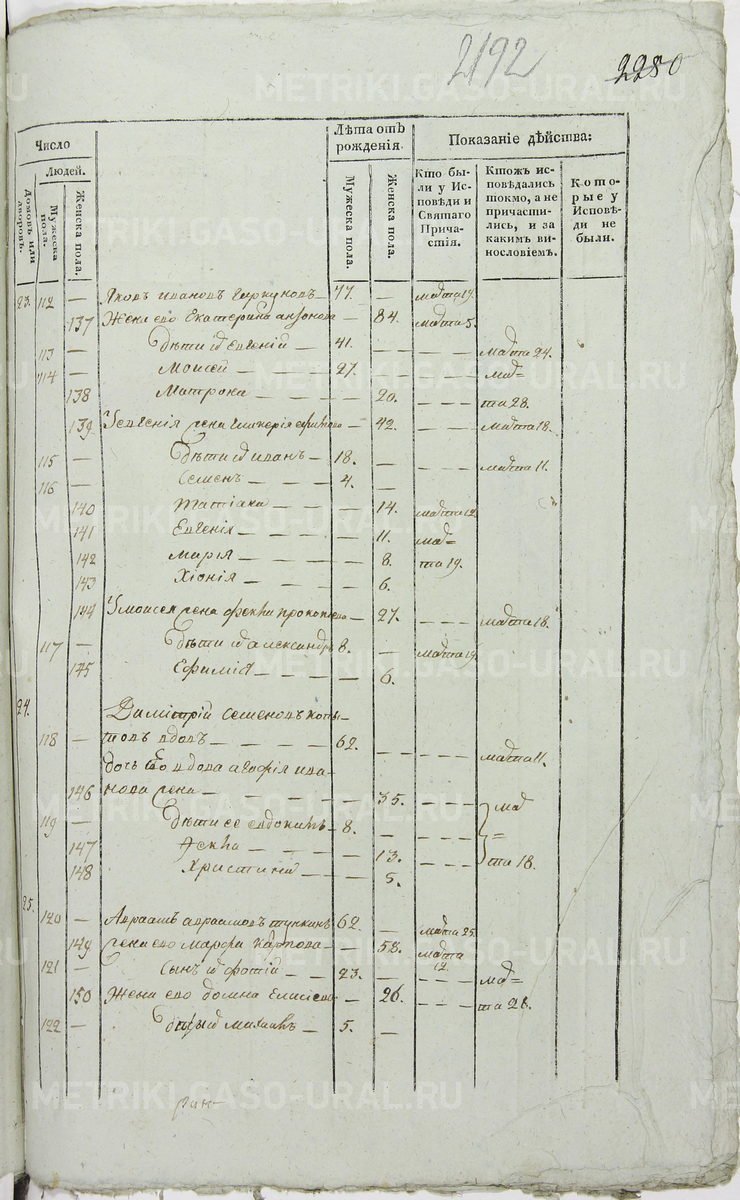 2192
2280
Число
Людей.
Домовъ или дворовъ.
Мужеска пола.
Женска пола.
Лѣта отъ рожденія.
Мужеска пола.
Женска пола.
Показаніе дѣйства:
Кто были у Исповѣди и Святаго Причастія.
Ктожъ исповѣдались токмо, а не причастились, и за какимъ винословіемъ.
Которые у Исповѣди не были.
23. 112 — Яковъ Ивановъ — 77. — марта 17.
137 Жена его Екатерина — 84. марта 5.
113 — Дѣти их Евгений — 41. — марта 24.
114 — Моисей — 27. — мар=
138 Матрона — 20. та 28.
139 У Евгения жена Гликерия — 42. — марта 18.
115 — Дѣти их Иванъ — 18. — марта 11.
116 — Семенъ — 4. —
140 Татиана — 14. марта 12.
141 Евгения — 11. мар=
142 Мария — 8. та 19.
143 Хиония — 6.
144 У Моисея жена Прокопьева — 27. — марта 18.
117 — Дѣти их Александръ 8. — марта 19.
145 Ефимия — 6.
24. Димитрий Семеновъ Копы-
118 — товъ вдовъ — 62. — марта 11.
дочь его вдова Агафия Ива-
146 нова — 35. — мар
119 — Дѣти ее Евдокимъ — 8. — =
147 — 13. — та 18.
148 Христина — 5.
25.
120 — Авраамъ Авраамовъ — 62. — марта 25.
149 жена его Марфа Карпова — 58. марта 12.
121 — Сынъ их Фотий — 23. — мар=
150 Жена его Домна — 26. — та 28.
122 — Михаилъ — 5. —
METRIKI.GASO-URAL.RU